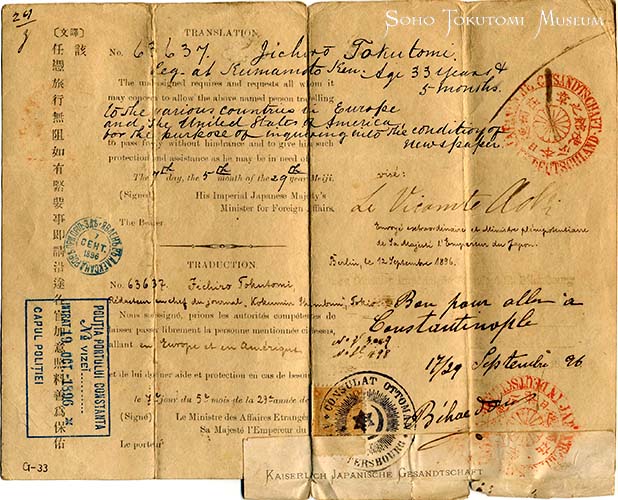 SOHO TOKUTOMI MUSEUM
29
(文譯)
該
任憑旅行無阻如有緊要事即請沿途各官加意照料善爲保佑
TRANSLATION.
No. 63637. Iichiro Tokutomi.
Leg. at Kumamoto Ken. Age 33 years &
5 months.
The undersigned requires and requests all whom it
may concern to allow the above named person travelling
to the various countries in Europe
and the United States of America
for the purpose of inquiring into the condition of
newspaper.
to pass freely without hindrance and to give such
protection and assistance as he may be in need of.
The 7th day, the 5th month of the 29th year Meiji.
(Signed) His Imperial Japanese Majesty's
Minister for Foreign Affairs.
The Bearer
TRADUCTION
No. 63637. Iichiro Tokutomi
Rédacteur en chef du journal, Kokumin Shimbun, Tokio
Nous soussigné, prions les autorités compétentes de
laisser passer librement la personne mentionnée ci-dessus,
allant en Europe et en Amérique
et de lui donner aide et protection en cas de besoin
le 7 jour du 5e mois de la 29e année de
(Signé) Le Ministre des Affaires Etrangères
Sa Majesté l'Empereur du
Le porteur
G-33
7
СЕНТ.
1896
POLITIA PORTULUI CONSTANTA
VIZEI
19 OCT. 1896
CAPUL POLITIEI
visé:
Le Vicomte Aoki
Envoyé extraordinaire et Ministre plénipotentiaire
de Sa Majesté l'Empereur du Japon.
Berlin, le 12 Septembre 1896.
Bon pour aller à
Constantinople
17/29 Septembre 96
CONSULAT OTTOMAN
PETERSBOURG
GESANDTSCHAFT
DEUTSCHLAND
KAISERLICH JAPANISCHE GESANDTSCHAFT